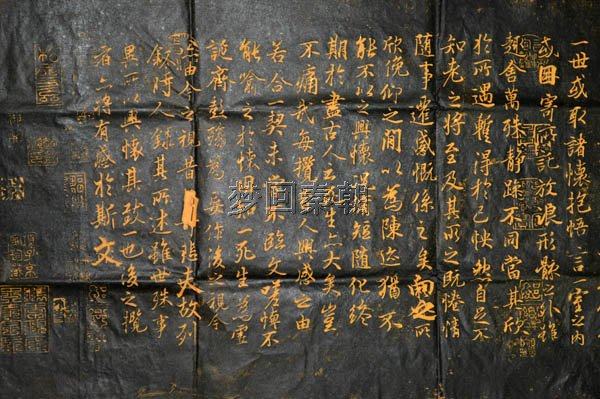 一世或取諸懷抱悟言一室之內
或因寄所託放浪形骸之外雖
趣舍萬殊靜躁不同當其欣
於所遇蹔得於己快然自足不
知老之將至及其所之既惓情
隨事遷感慨係之矣向之所
欣俛仰之閒以為陳迹猶不
能不以之興懷況脩短隨化終
期於盡古人云死生亦大矣豈
不痛哉每攬昔人興感之由
若合一契未嘗不臨文嗟悼不
能喻之於懷固知一死生為虛
誕齊彭殤為妄作後之視今
亦由今之視昔悲夫故列
敘時人錄其所述雖世殊事
異所以興懷其致一也後之攬
者亦將有感於斯文
梦回秦朝